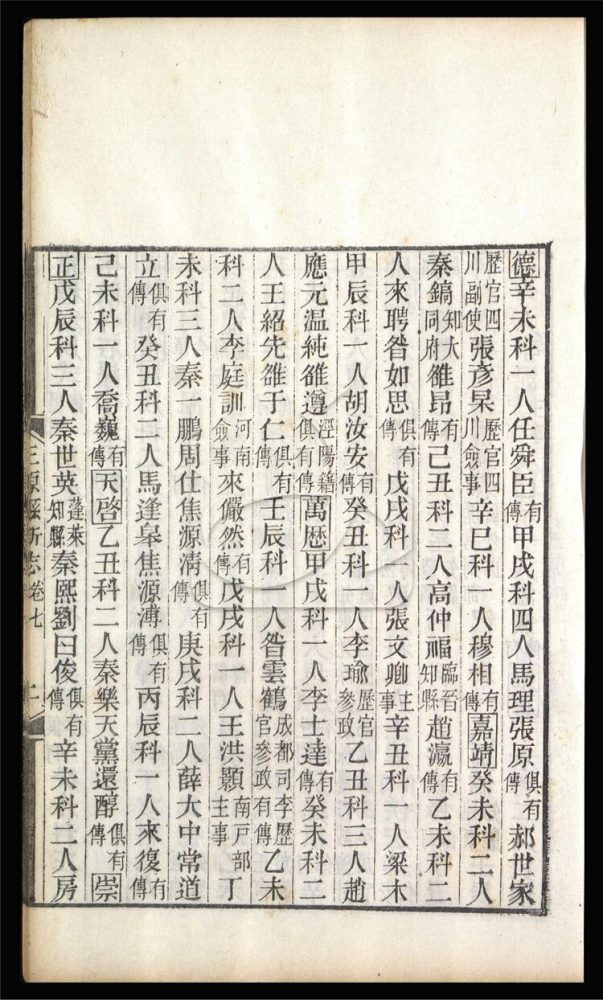 德辛未科一人任舜臣有傳甲戌科四人馬理張原俱有傳郝世家
歷官四川副使張彥杲歷官四川僉事辛巳科一人穆相有傳嘉靖癸未科二人
秦鎬知大同府雒昂有傳己丑科二人高仲福臨晉知縣趙瀛有傳乙未科二
人來聘昝如思俱有傳戊戌科一人張文卿主事辛丑科一人梁木
甲辰科一人胡汝安有傳癸丑科一人李瑜歷官參政乙丑科三人趙
應元温純雒遵涇陽籍俱有傳萬歷甲戌科一人李士達有傳癸未科二
人王紹先雒于仁俱有傳壬辰科一人昝雲鶴成都司李歷官參政有傳乙未
科二人李庭訓河南僉事來儼然有傳戊戌科一人王洪顥南戸部主事丁
未科三人秦一鵬周仕焦源清俱有傳庚戌科二人薛大中常道
立俱有傳癸丑科二人馬逢臯焦源溥俱有傳丙辰科一人來復有傳
己未科一人喬巍有傳天啓乙丑科二人秦樂天黨還醇俱有傳崇
正戊辰科三人秦世英蓬萊知縣秦熙劉曰俊俱有傳辛未科二人房
三原縣新志卷七
二